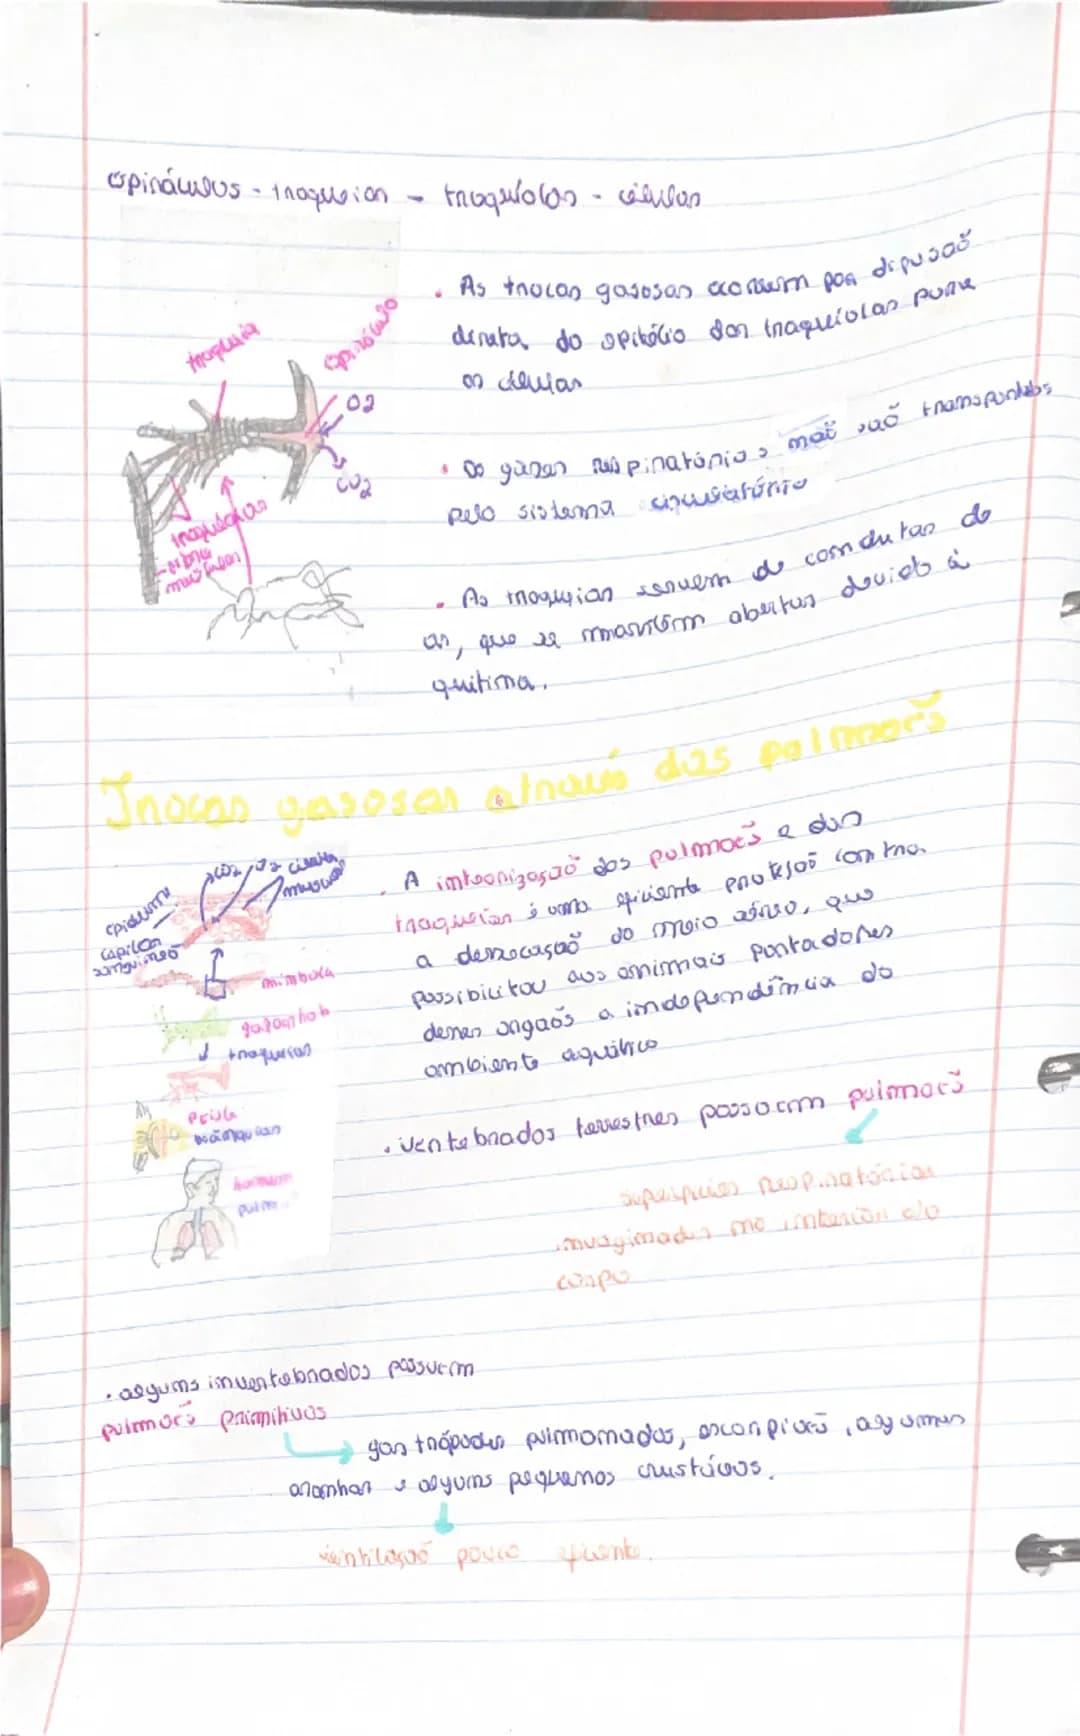 espiráculos - traqueias - traquíolas - células
traqueia
espiráculo
O2
CO2
traquíolas
- fibras
musculares
. As trocas gasosas ocorrem por difusão
direta, do epitélio das traquíolas para
as células
. Os gases respiratórios não são transportados
pelo sistema circulatório
. As traqueias servem de condutas de
ar, que se mantêm abertas devido à
quitina.
Trocas gasosas através dos pulmões
CO2 / O2
epiderme
capilar
sanguíneo
minhoca
gafanhoto
traqueias
Peixe
brânquias
homem
. A interiorização dos pulmões e das
traqueias é uma eficiente proteção contra
a dessecação do meio aéreo, que
possibilitou aos animais portadores
desses orgãos a independência do
ambiente aquático
. vertebrados terrestres possuem pulmões
superfícies respiratórias
invaginadas no interior do
corpo
. alguns invertebrados possuem
pulmões primitivos
gastrópodes pulmonados, escorpiões, algumas
aranhas e alguns pequenos crustáceos.
ventilação pouco eficiente.